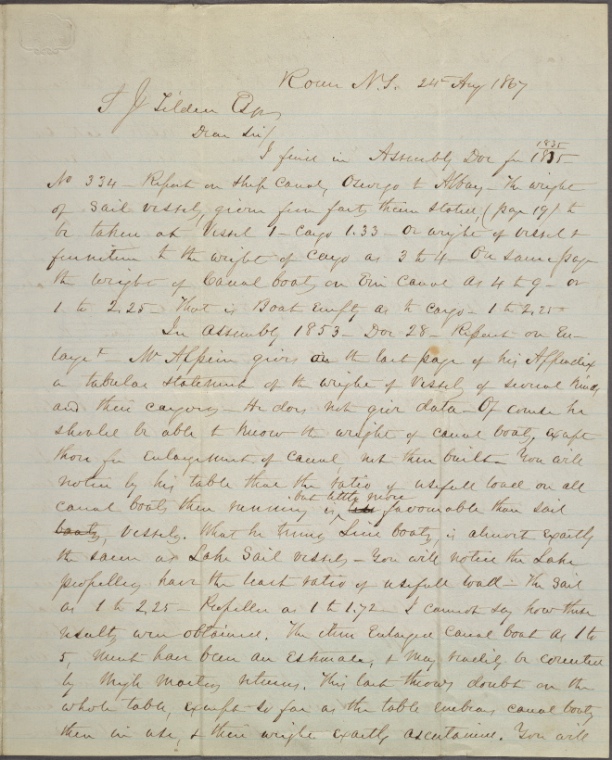 Rome N.Y. 24 Aug 1867
S J Tilden Esq
Dear Sir/
1835
I find in Assembly Doc for 1835
No 334 - Report on Ship Canal, Oswego to Albany - The weight
of Sail vessels, given from facts therein stated, (page 19) to
be taken as Vessel 1 - Cargo 1.33 - or weight of vessel &
furniture to the weight of cargo as 3 to 4 - On same page
the weight of Canal boats on Erie Canal as 4 to 9 - or
1 to 2.25 - That is Boat Empty as to cargo - 1 to 2.25 -
In Assembly 1853 - Doc 28 - Report on En-
largt - Mr McAlpine gives on the last page of his Appendix
a tabular statement of the weight of Vessels of several kinds
and their cargoes - He does not give data - Of course he
should be able to know the weight of canal boats, except
those for Enlargement of Canal, not then built - You will
notice by his table that the ratio of usefull load on all
but little more
canal boats then running is favourable than sail
boats, vessels. What he terms Line boats, is almost exactly
the same as Lake Sail vessels - You will notice the Lake
propellers have the least ratio of usefull load - The Sail
as 1 to 2.25 - Propeller as 1 to 1.72 - I cannot say how these
results were obtained. The item Enlarged canal boat as 1 to
5, must have been an Estimate, & may readily be corrected
by Weigh masters returns. This last throws doubt on the
whole table, except so far as the table embraces canal boats
then in use, & their weight exactly ascertained. You will